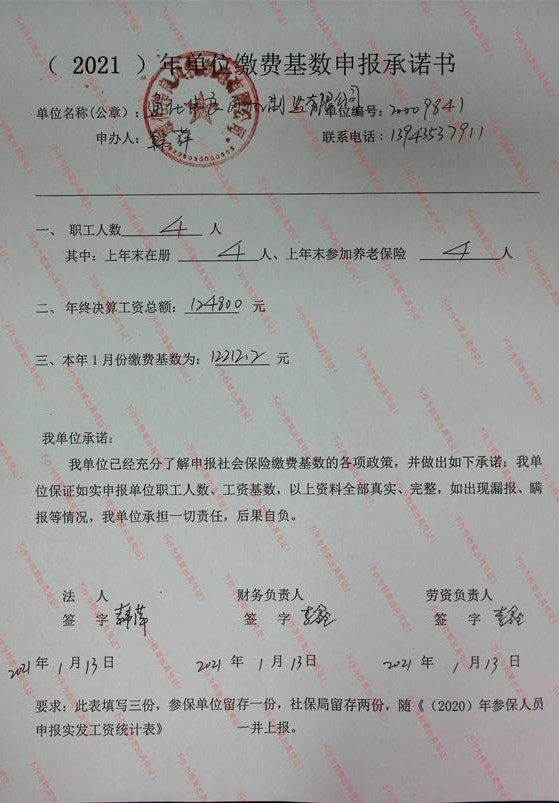 （ 2021 ）年单位缴费基数申报承诺书
单位名称(公章)： 有限公司 单位编号：20009841
申办人：韩萍 联系电话：13943537911
一、 职工人数 4 人
其中：上年末在册 4 人、上年末参加养老保险 4 人
二、年终决算工资总额：124800 元
三、本年1月份缴费基数为：12212.2 元
我单位承诺：
我单位已经充分了解申报社会保险缴费基数的各项政策，并做出如下承诺：我单
位保证如实申报单位职工人数、工资基数，以上资料全部真实、完整，如出现漏报、瞒
报等情况，我单位承担一切责任，后果自负。
法 人 财务负责人 劳资负责人
签 字 韩萍 签 字 签 字
2021年 1月13日 2021年 1月13日 2021年 1月13日
要求：此表填写三份，参保单位留存一份，社保局留存两份，随《（2020）年参保人员
申报实发工资统计表》 一并上报。